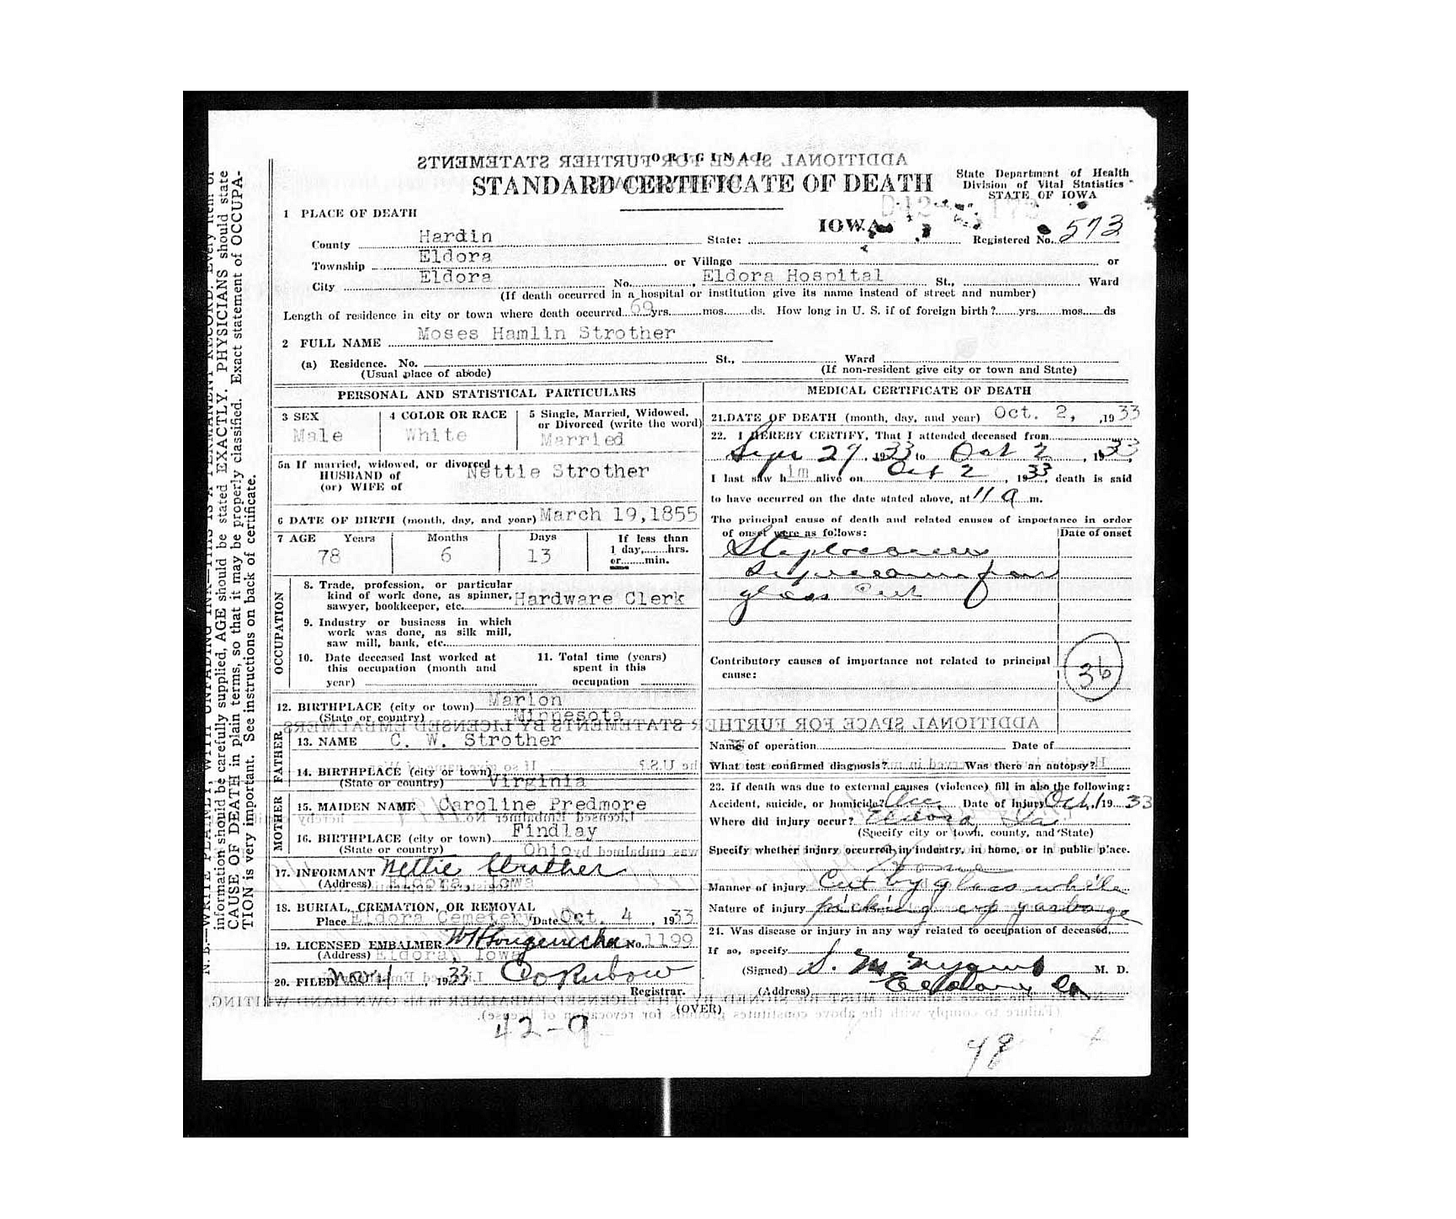 ORIGINAL
STANDARD CERTIFICATE OF DEATH
State Department of Health
Division of Vital Statistics
STATE OF IOWA
1 PLACE OF DEATH
IOWA
County Hardin State: Registered No. 573
Township Eldora or Village or
City Eldora No. , Eldora Hospital St., Ward
(If death occurred in a hospital or institution give its name instead of street and number)
Length of residence in city or town where death occurred 69 yrs. mos. ds. How long in U. S. if of foreign birth? yrs. mos. ds
2 FULL NAME Moses Hamlin Strother
(a) Residence. No. St., Ward
(Usual place of abode) (If non-resident give city or town and State)
PERSONAL AND STATISTICAL PARTICULARS
3 SEX Male
4 COLOR OR RACE White
5 Single, Married, Widowed,
or Divorced (write the word)
Married
5a If married, widowed, or divorced
HUSBAND of Nettie Strother
(or) WIFE of
6 DATE OF BIRTH (month, day, and year) March 19,1855
7 AGE Years Months Days If less than
1 day, hrs.
or min.
78 6 13
OCCUPATION
8. Trade, profession, or particular
kind of work done, as spinner, Hardware Clerk
sawyer, bookkeeper, etc.
9. Industry or business in which
work was done, as silk mill,
saw mill, bank, etc.
10. Date deceased last worked at
this occupation (month and
year)
11. Total time (years)
spent in this
occupation
12. BIRTHPLACE (city or town) Marion
(State or country) Minnesota
FATHER
13. NAME C. W. Strother
14. BIRTHPLACE (city or town)
(State or country) Virginia
MOTHER
15. MAIDEN NAME Caroline Predmore
16. BIRTHPLACE (city or town) Findlay
(State or country) Ohio
17. INFORMANT Nettie Strother
(Address) Eldora, Iowa
18. BURIAL, CREMATION, OR REMOVAL
Place Eldora Cemetery Date Oct. 4 , 1933
19. LICENSED EMBALMER No. 1199
(Address) Eldora, Iowa
20. FILED Nov 1 , 1933
Registrar.
MEDICAL CERTIFICATE OF DEATH
21. DATE OF DEATH (month, day, and year) Oct. 2, , 1933
22. I HEREBY CERTIFY, That I attended deceased from
Sept 29, 1933 to Oct 2 , 1933
I last saw him alive on Oct 2 , 1933, death is said
to have occurred on the date stated above, at 11 a m.
The principal cause of death and related causes of importance in order
of onset were as follows: Date of onset
from
glass cut
Contributory causes of importance not related to principal
cause:
36
Name of operation Date of
What test confirmed diagnosis? Was there an autopsy?
23. If death was due to external causes (violence) fill in also the following:
Accident, suicide, or homicide? Acc. Date of Injury Oct. 1 1933
Where did injury occur? Eldora Ia.
(Specify city or town, county, and State)
Specify whether injury occurred in industry, in home, or in public place.
Home
Manner of injury Cut by glass while
Nature of injury picking up garbage
24. Was disease or injury in any way related to occupation of deceased
If so, specify
(Signed) M. D.
(Address) Eldora Ia
(OVER)
42-9
N. B.—WRITE PLAINLY, WITH UNFADING INK—THIS IS A PERMANENT RECORD. Every item of
information should be carefully supplied. AGE should be stated EXACTLY. PHYSICIANS should state
CAUSE OF DEATH in plain terms, so that it may be properly classified. Exact statement of OCCUPA-
TION is very important. See instructions on back of certificate.